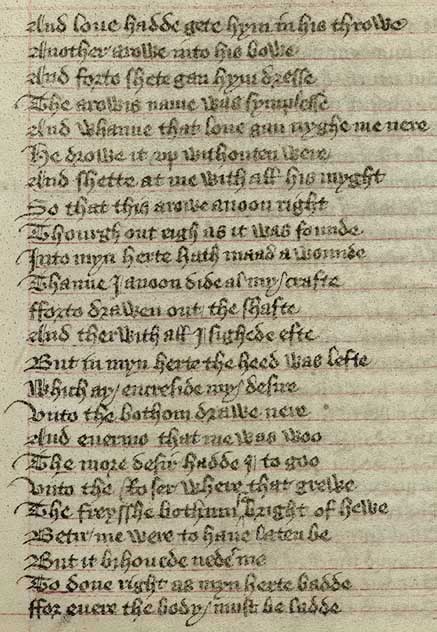 And loue hadde gete hym in his throwe
Another arowe into his bowe
And forto shete gan hym dresse
The arowis name was symplesse
And whanne that loue gan nyghe me nere
He drowe it vp withouten were
And shette at me with all his myght
So that this arowe anoon right
Thourgh out eigh as it was founde
Into myn herte hath maad a wounde
Thanne I anoon dide al my / crafte
fforto drawen out / the shafte
And therwith all I sighede efte
But in myn herte the heed was lefte
Which ay / encreside my / desire
Vnto the bothom drawe nere
And euermo that me was woo
The more desir hadde I to goo
Vnto the / Roser where that grewe
The freysshe bothum bright of hewe
Betir / me were to haue laten be
But it bihouede nede me
To done right as myn herte badde
ffor euere the body / must be ladde